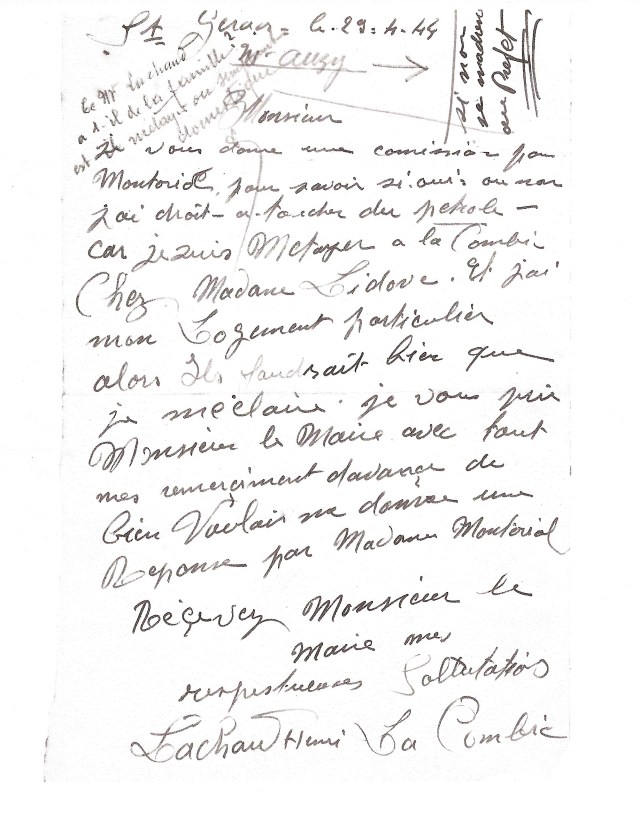 St Geracy le 29-4-44
Mr Auzy
si non
se madresse
au Prefet
Ce Mr Lachaud
a t-il de la famille?
est il métayer ou simplement
domestique
Monsieur
Je vous donne une comission par
Montoriol, pour savoir si oui ou non
j'ai droit a toucher du petrole -
car je suis Metayer a la Combie
Chez Madame Lidove. Et j'ai
mon Logement particulier
alors Ils faudrait bien que
je m'éclaire. je vous prie
Monsieur le Maire avec tout
mes remerciment davance de
bien Vouloir me donnée une
Reponse par Madame Montoriol
Réçevez Monsieur le
Maire mes
respectueuses Saltutations
Lachaud Henri La Combie